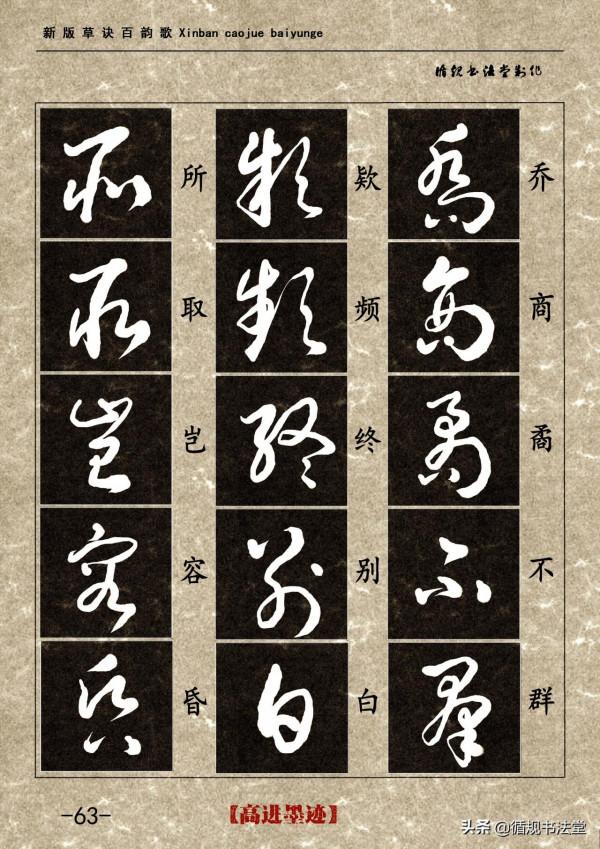 新版草诀百韵歌 Xinban caojue baiyunge
循规书法堂制作
乔商矞不群
欵频终别白
所取岂容昏
-63-
【高进墨迹】
头条 @循规书法堂